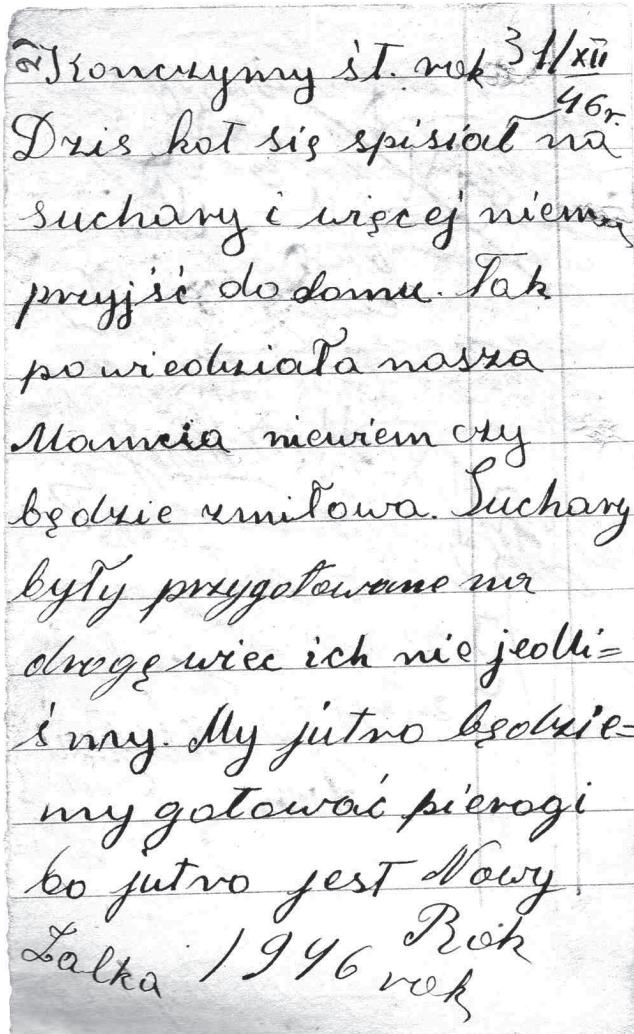 2) Konczymy st. rok 31/XII
46r.
Dzis kot się spisiał na
suchary i więcej niema
przyjść do domu. Tak
powiedziała nasza
Mamcia niewiem czy
będzie zmiłowa. Suchary
były przygotowane na
drogę wiec ich nie jedli=
śmy. My jutro będzie=
my gotować pierogi
bo jutro jest Nowy
Rok
Lalka 1946 rok